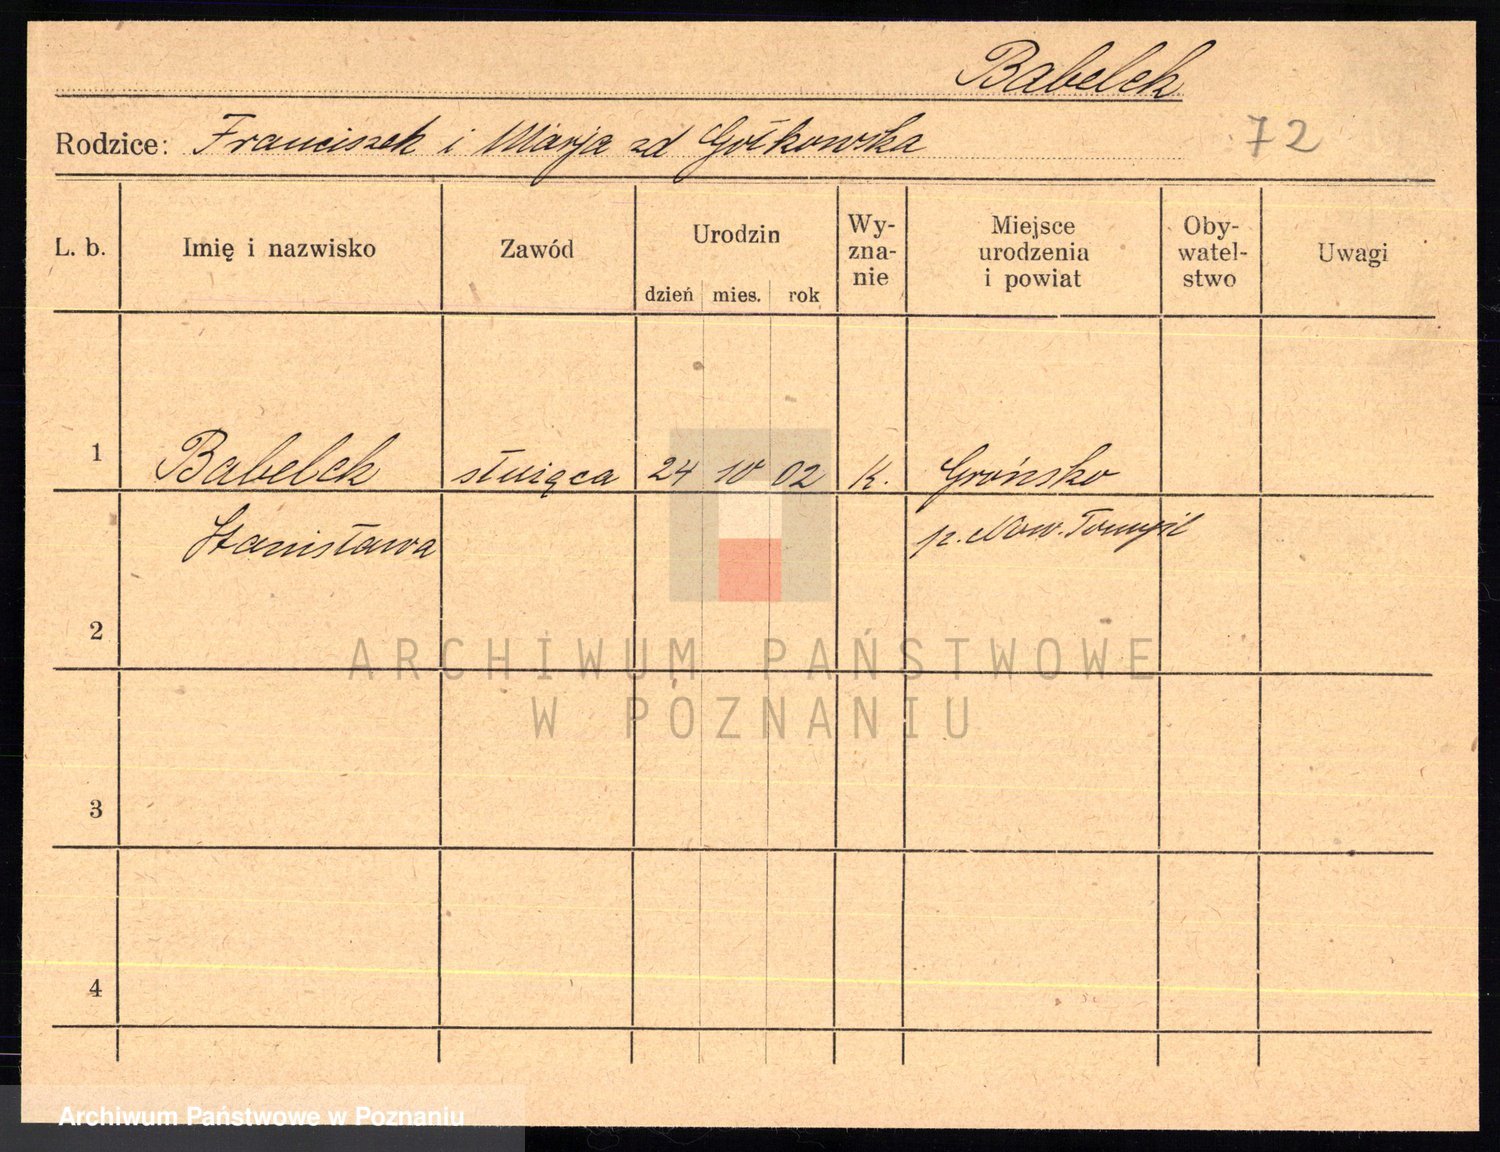 Babelek
Rodzice: Franciszek i Marja zd Gołkowska 72
L. b. Imię i nazwisko Zawód Urodzin dzień mies. rok Wy-
zna-
nie Miejsce
urodzenia
i powiat Oby-
watel-
stwo Uwagi
1 Babelek służąca 24 10 02 k. Grońsko
Stanisława p. Now. Tomyśl
2
3
4
ARCHIWUM PAŃSTWOWE
W POZNANIU
Archiwum Państwowe w Poznaniu